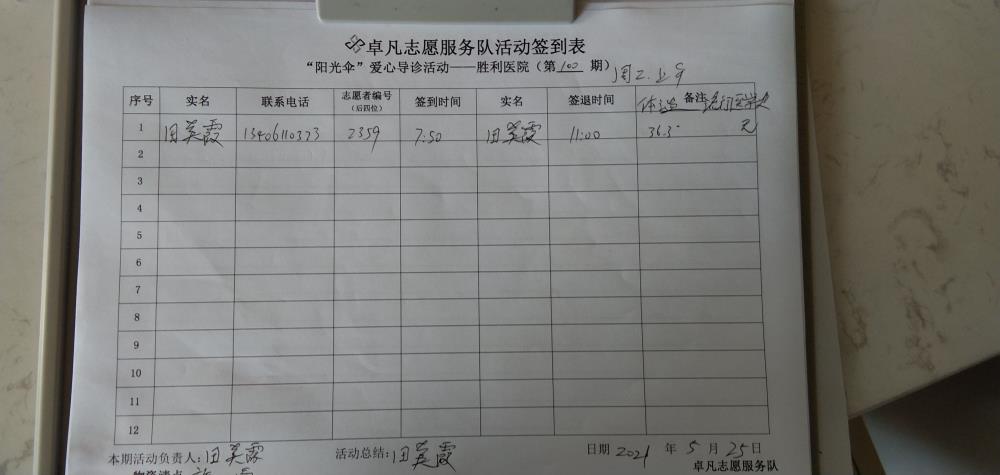 卓凡志愿服务队活动签到表
“阳光伞”爱心导诊活动——胜利医院（第100期） 周二.上午
序号 实名 联系电话 志愿者编号（后四位） 签到时间 实名 签退时间 体温 备注
1 田英霞 13406110373 2359 7:50 田英霞 11:00 36.5 无
2
3
4
5
6
7
8
9
10
11
12
本期活动负责人:田英霞 活动总结:田英霞 日期 2021 年 5 月 25日
物资清点 卓凡志愿服务队